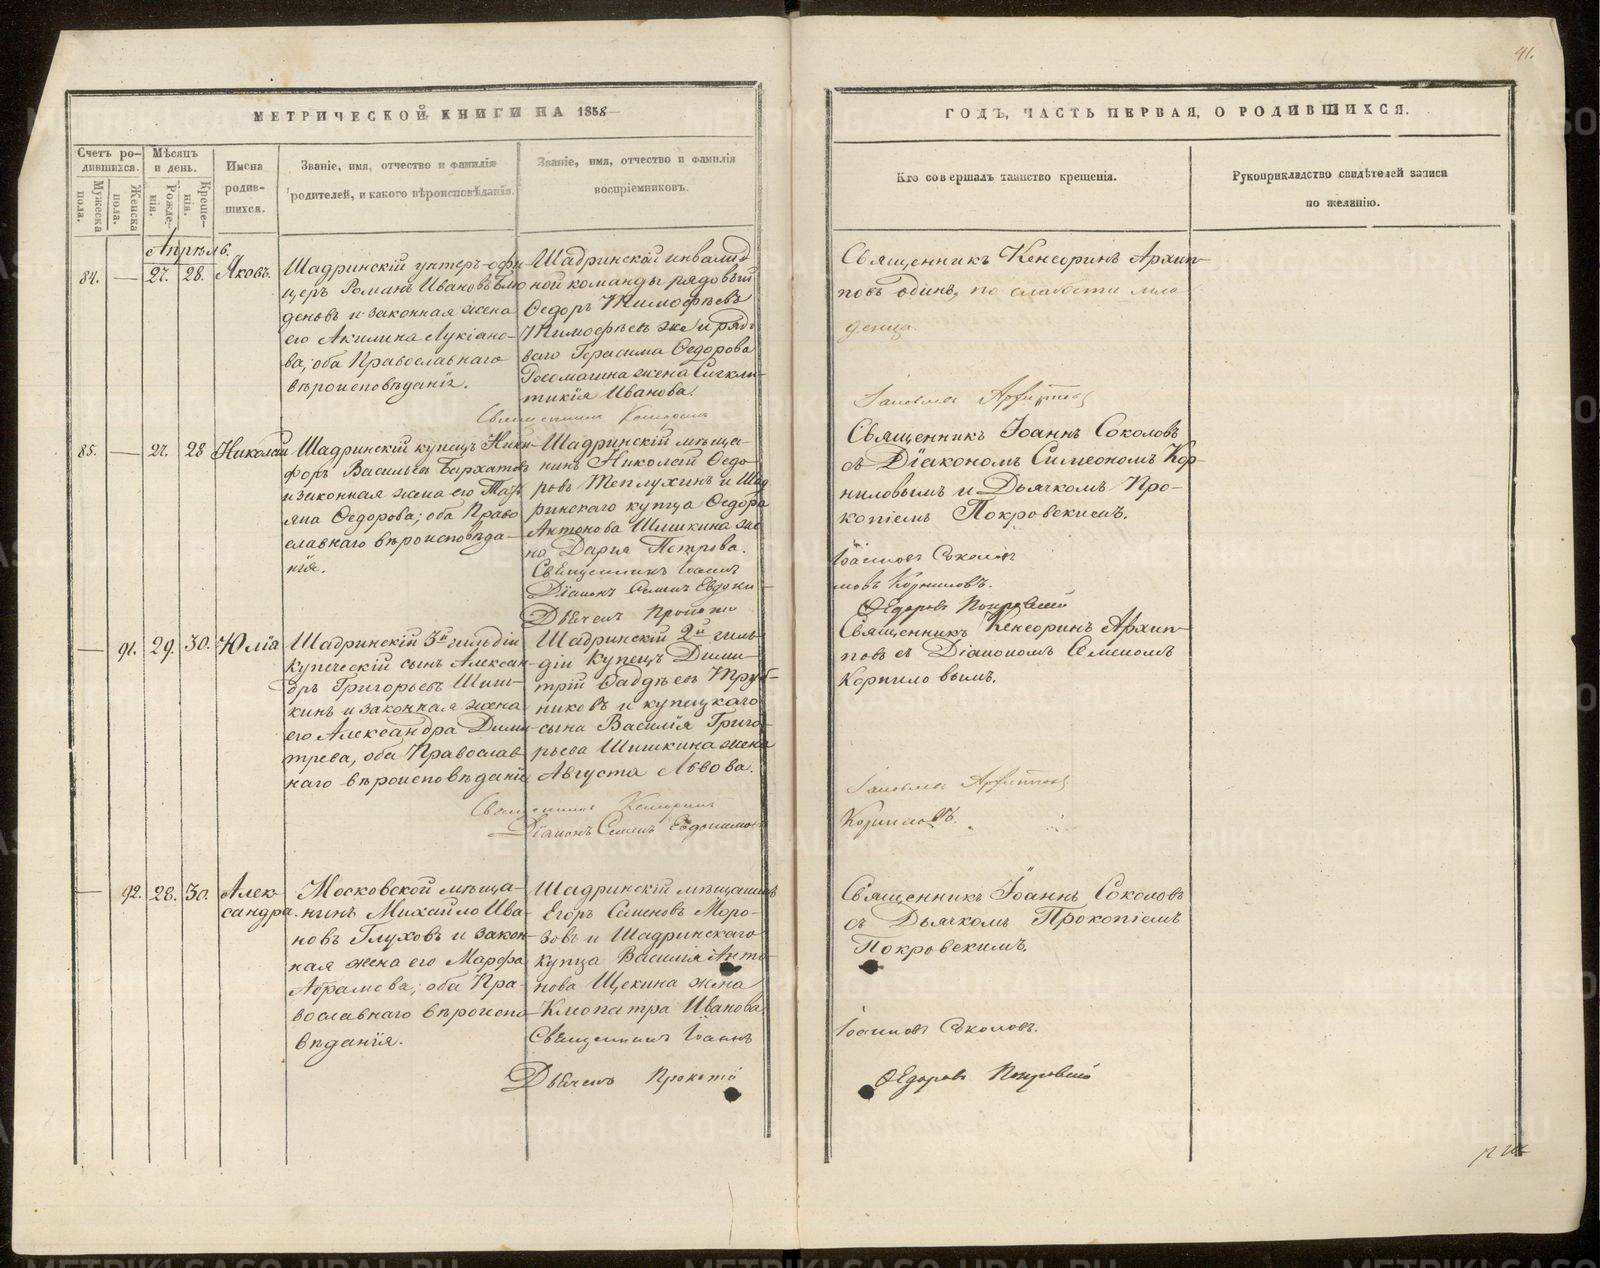 41.
МЕТРИЧЕСКОЙ КНИГИ НА 1858
ГОДЪ, ЧАСТЬ ПЕРВАЯ, О РОДИВШИХСЯ.
Счетъ ро-
дившихся.
Мужеска
пола.
Женска
пола.
Мѣсяцъ
и день.
Рожде-
нія.
Креще-
нія.
Имена
родив-
шихся.
Званіе, имя, отчество и фамилія
родителей, и какого вѣроисповѣданія.
Званіе, имя, отчество и фамилія
воспріемниковъ.
Кто совершалъ таинство крещенія.
Рукоприкладство свидѣтелей записи
по желанію.
Апрѣль.
84.
—
27.
28.
Яковъ.
Шадринскій унтеръ-офи-
церъ Романъ Ивановъ
деновъ и законная жена
его Акилина Лукіано-
ва, оба Православнаго
вѣроисповѣданія.
Шадринской инвалид
ной команды рядовый
Ѳедоръ Тимофѣевъ
Тимофѣевъ же и рядо
ваго Герасима Ѳедорова
Росомагина жена Сигкли-
тикія Иванова.
Священникъ
Священникъ Кенсоринъ Архип-
повъ одинъ, по слабости мла
денца.
Архиповъ
85.
—
27.
28
Николай
Шадринскій купецъ Ники-
форъ Васильевъ Бархатовъ
и законная жена его Тать
яна Ѳедорова; оба Право
славнаго вѣроисповѣда-
нія.
Шадринскій мѣща-
нинъ Николай Ѳедо-
ровъ Теплухинъ и Шад
ринскаго купца Ѳедора
Антонова Шишкина же
на Дарья Петрова.
Священникъ Іоаннъ
Діаконъ Семенъ Евдоки-
Дьячекъ Прокопій
Священникъ Іоаннъ Соколовъ
съ Діакономъ Симеономъ Кор-
ниловымъ и Дьячкомъ Про-
копіемъ Покровскимъ.
Соколовъ
мовъ Корниловъ.
Ѳедоровъ Покровскій
—
91.
29.
30.
Юлія
Шадринскій 3й гильдіи
купеческій сынъ Алексан-
дръ Григорьевъ Шиш-
кинъ и законная жена
его Александра Дими-
тріева, оба Православ-
наго вѣроисповѣданія
Шадринскій 2й гиль-
діи купецъ Дими-
трій Ѳаддѣевъ Труб-
никовъ и купецкаго
сына Василія Григо-
рьева Шишкина жена
Августа Львова.
Священникъ Кенсоринъ
Діаконъ Семенъ Евдокимовъ
Священникъ Кенсоринъ Архип-
повъ съ Діакономъ Семеномъ
Корниловымъ.
Архиповъ
Корниловъ.
—
92.
28.
30.
Алек-
сандра.
Московской мѣща-
нинъ Михайло Ива-
новъ Глуховъ и закон-
ная жена его Марфа
Абрамова; оба Пра-
вославнаго вѣроиспо-
вѣданія.
Шадринскій мѣщанинъ
Егоръ Семеновъ Моро-
зовъ и Шадринскаго
купца Василія Анто-
нова Щекина жена
Клеопатра Иванова.
Священникъ Іоаннъ
Дьячекъ Прокопій
Священникъ Іоаннъ Соколовъ
съ Дьячкомъ Прокопіемъ
Покровскимъ.
Соколовъ.
Ѳедоровъ Покровскій
METRIKI.GASO-URAL.RU